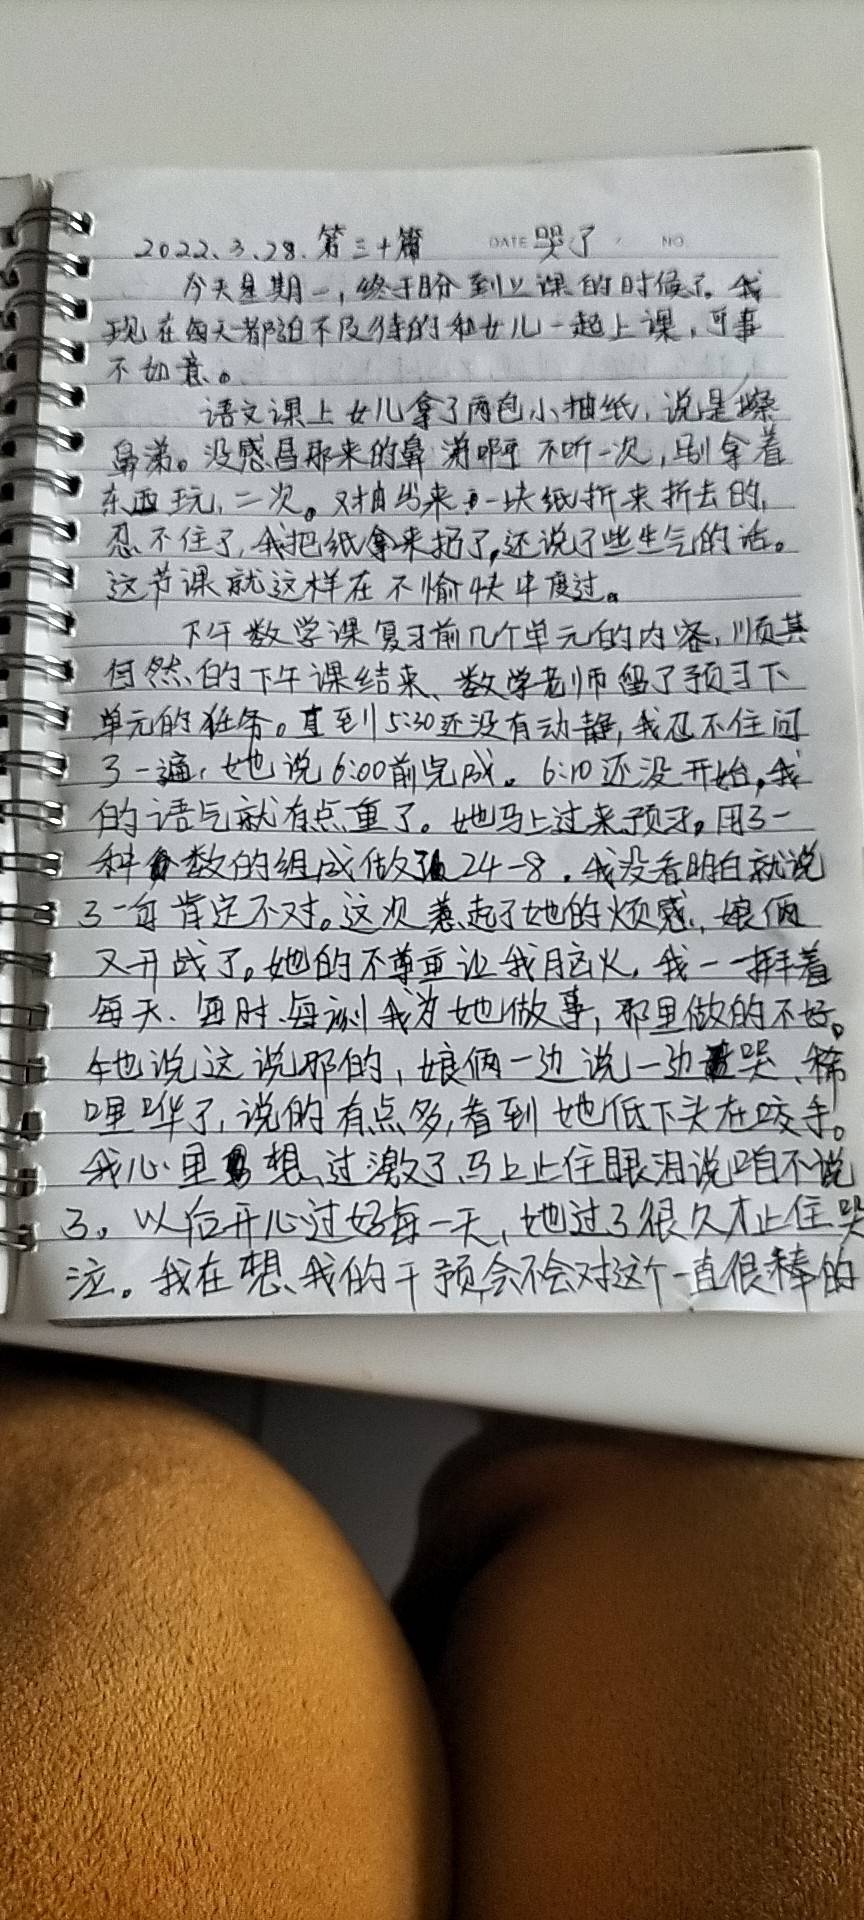 2022.3.28.第三十篇 DATE 哭了 NO.
今天星期一,终于盼到上课的时候了。我
现在每天都迫不及待的和女儿一起上课,可事
不如意。
语文课上女儿拿了两包小抽纸,说是擦
鼻涕。没感冒那来的鼻涕啊 不听一次,别拿着
东西玩,二次。又抽出来一块纸折来折去的,
忍不住了,我把纸拿来扔了,还说了些生气的话。
这节课就这样在不愉快中度过。
下午数学课复习前几个单元的内容,顺其
自然的下午课结束、数学老师留了预习下
单元的任务。直到5:30还没有动静,我忍不住问
了一遍,她说6:00前完成。6:10还没开始,我
的语气就有点重了。她马上过来预习,用了一
种分数的组成做了24-8,我没看明白就说
了一句肯定不对。这次惹起了她的烦感,娘俩
又开战了。她的不尊重让我脑火,我一一摆着
每天、每时、每刻我为她做事,那里做的不好。
她说这说那的,娘俩一边说一边哭、稀
哩哗了,说的有点多,看到她低下头在咬手。
我心里想,过激了,马上止住眼泪说咱不说
了。以后开心过好每一天,她过了很久才止住哭
泣。我在想、我的干预会不会对这个一直很棒的